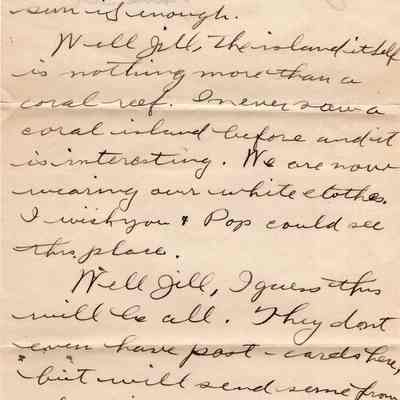 sun is enough.
Well Jill, the island itself
is nothing more than a
coral reef. I never saw a
coral island before and it
is interesting. We are now
wearing our white clothes.
I wish you & Pop could see
this place.
Well Jill, I guess this
will be all. They dont
even have post-cards here,
but will send some from